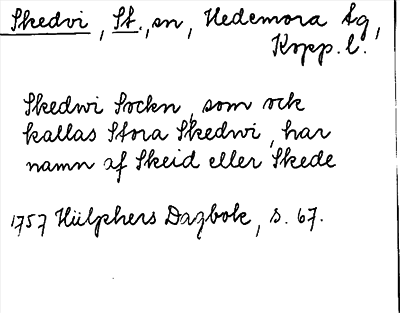 Skedvi, St., sn, Hedemora tg,
Kopp. l.
Skedwi Sockn, som ock
kallas Stora Skedwi, har
namn af Skeid eller Skede
1757 Hülphers Dagbok, s. 67.